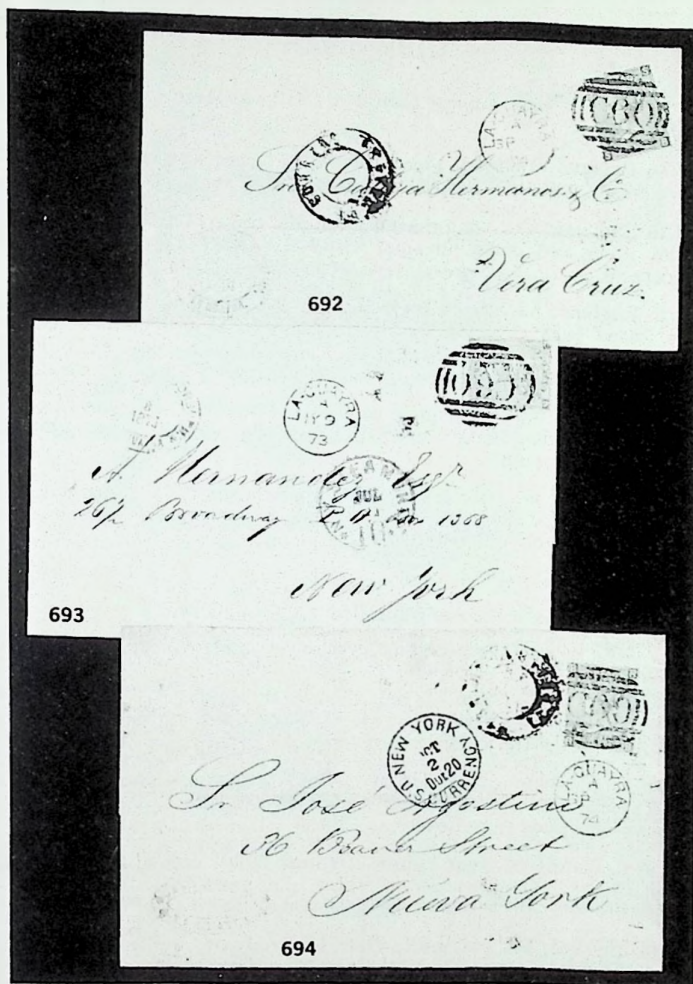 C60
LA GUAYRA
A
SP
Hermanos, & C
Vera Cruz.
692
C60
LA GUAYRA
A
JY 9
73
A. Hernandez Esqr
267 Broadway P. O. Box 1368
JUL
New York
693
C60
NEW YORK
OCT
2
Due 20
U.S. CURRENCY
LA GUAYRA
A
74
Sr José Agostini
36 Beaver Street
Nueva York
694